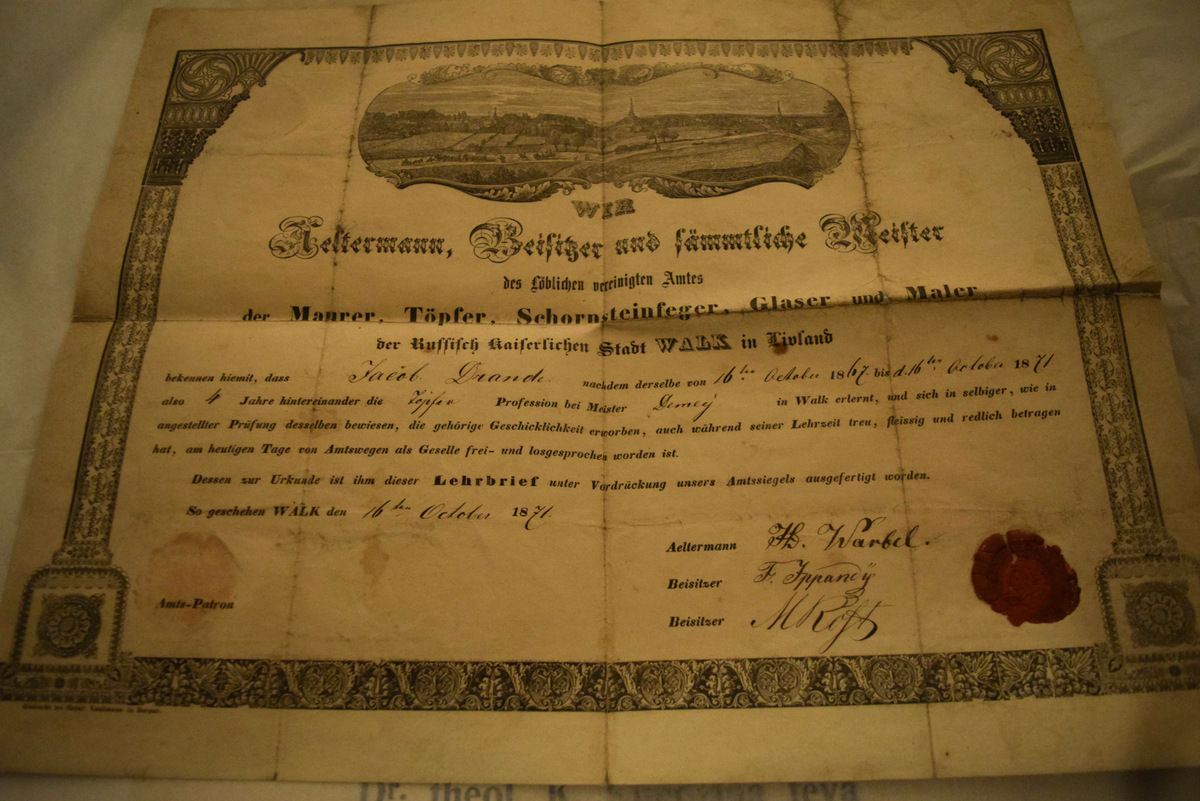 WIR
Aeltermann, Beisitzer und sämmtliche Meister
des Löblichen vereinigten Amtes
der Maurer, Töpfer, Schornsteinfeger, Glaser und Maler
der Russisch Kaiserlichen Stadt WALK in Livland
bekennen hiemit, dass Jacob Drande nachdem derselbe von 16ten October 1867 bis d. 16ten October 1871
also 4 Jahre hintereinander die Töpfer Profession bei Meister Demey in Walk erlernt, und sich in selbiger, wie in
angestellter Prüfung desselben bewiesen, die gehörige Geschicklichkeit erworben, auch während seiner Lehrzeit treu, fleissig und redlich betragen
hat, am heutigen Tage von Amtswegen als Geselle frei- und losgesprochen worden ist.
Dessen zur Urkunde ist ihm dieser Lehrbrief unter Vordrückung unsers Amtssiegels ausgefertigt worden.
So geschehen WALK den 16ten October 1871.
Aeltermann Warbel.
Beisitzer F. Ippandÿ
Beisitzer M Rost
Amts-Patron
Dr. theol K